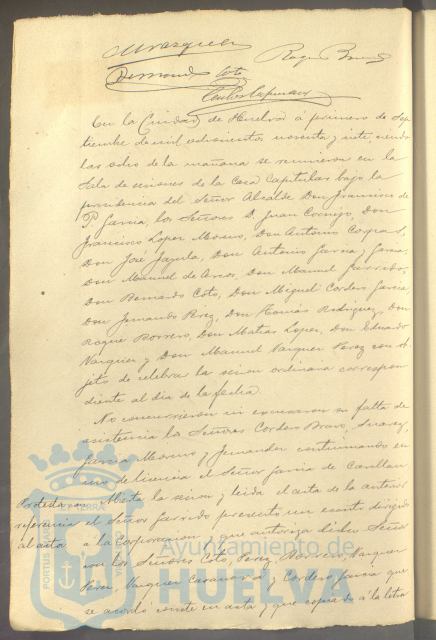 M Vazquez
Roque B
Bernardo Coto
En la Ciudad de Huelva á primero de Sep
tiembre de mil ochocientos noventa y siete, siendo
las ocho de la mañana se reunieron en la
Sala de sesiones de la Casa Capitular bajo la
presidencia del Señor Alcalde Don Francisco de
P. García, los Señores D. Juan Cornejo, Don
Francisco Lopez Moreno, Don Antonio
Don José Don Antonio García y García,
Don Manuel de Arcos, Don Manuel Garrido,
Don Bernardo Coto, Don Miguel Cordero García
Don Fernando Perez, Don Tomás Rodriguez, Don
Roque Borrero, Don Matias Lopez, Don Eduardo
Vazquez y Don Manuel Vazquez Perez con ob
jeto de celebrar la sesion ordinaria correspon
diente al dia de la fecha.
No concurrieron ni excusaron su falta de
asistencia los Señores Cordero Bravo, Suarez,
García Moreno y Fernandez continuando en
uso de licencia el Señor García de
Protesta en Abierta la sesion y leida el acta de la anterior
referencia el Señor Garrido presenta un escrito dirigido
al acta á la Corporacion, que autoriza dicho Señor
con los Señores Coto, Perez, Borrero, Vazquez
Perez, Vazquez y Cordero García que
se acordó conste en acta y que copiado á la letra
PORTUS
Ayuntamiento de
HUELVA